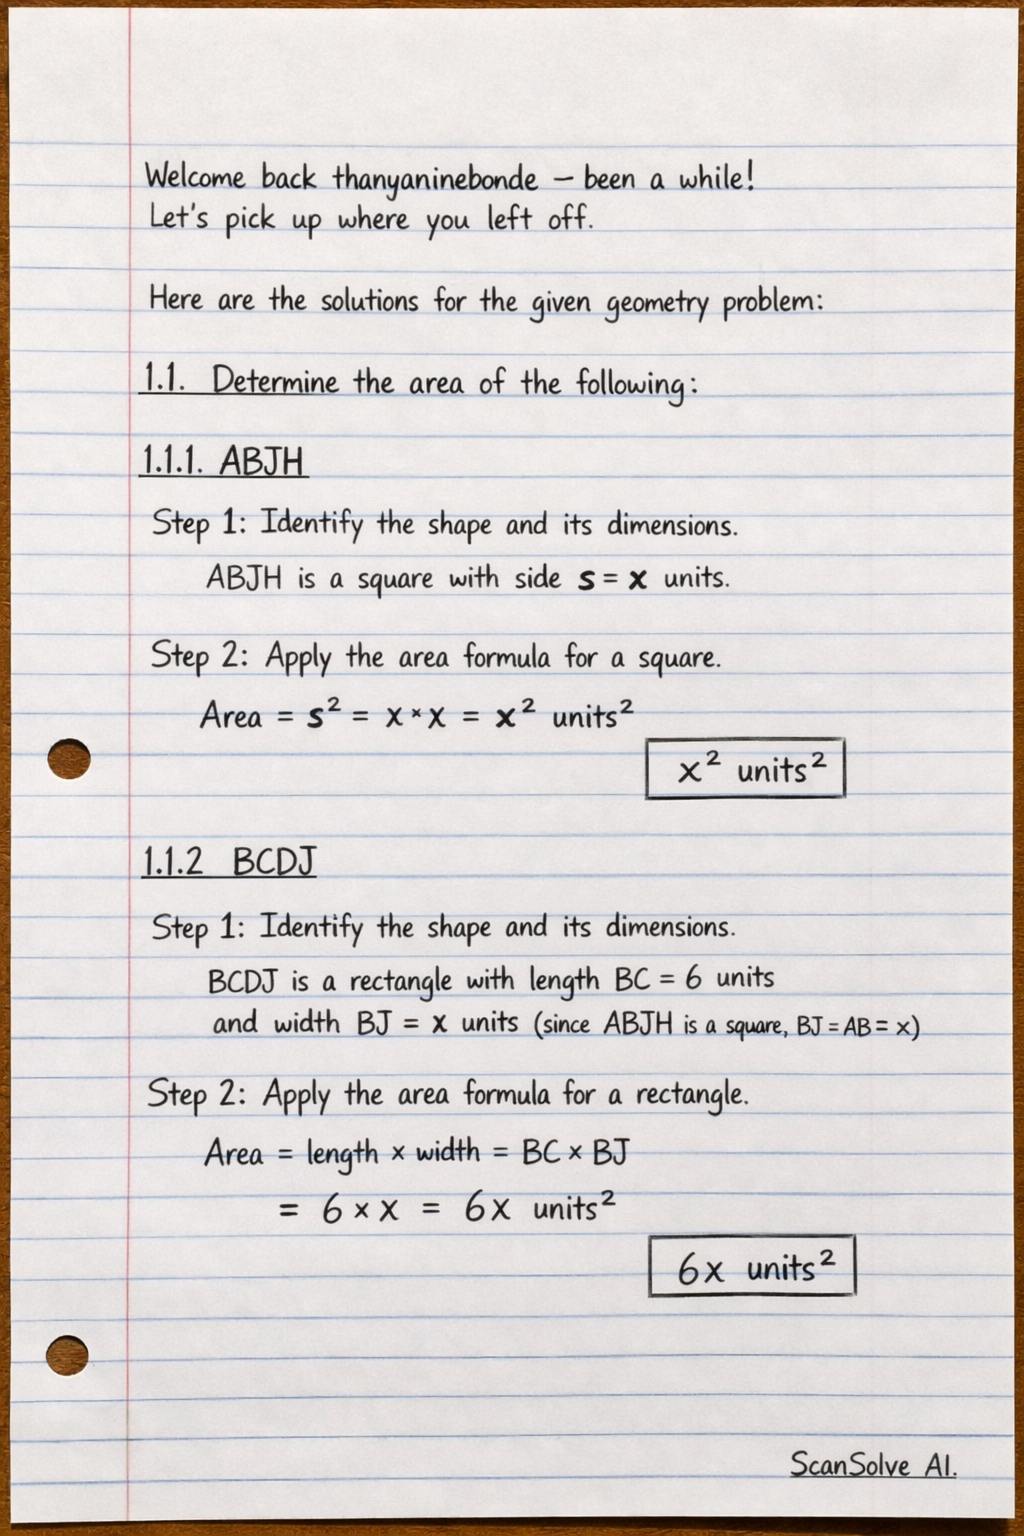 Welcome back thanyaninebonde – been a while!
Let's pick up where you left off.
Here are the solutions for the given geometry problem:
1.1. Determine the area of the following:
1.1.1. ABJH
Step 1: Identify the shape and its dimensions.
ABJH is a square with side s = x units.
Step 2: Apply the area formula for a square.
Area = s² = x × x = x² units²
x² units²
1.1.2 BCDJ
Step 1: Identify the shape and its dimensions.
BCDJ is a rectangle with length BC = 6 units
and width BJ = x units (since ABJH is a square, BJ = AB = x)
Step 2: Apply the area formula for a rectangle.
Area = length × width = BC × BJ
= 6 × x = 6x units²
6x units²
ScanSolve AI.